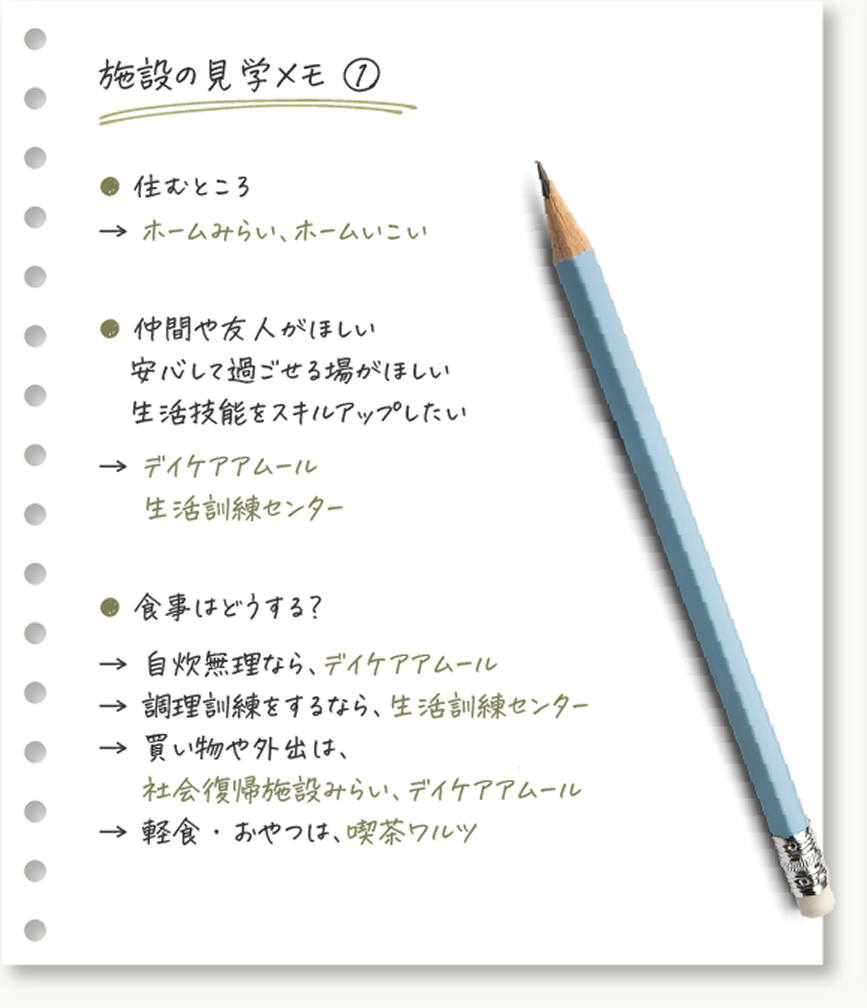 施設の見学メモ ①
● 住むところ
→ ホームみらい、ホームいこい
● 仲間や友人がほしい
安心して過ごせる場がほしい
生活技能をスキルアップしたい
→ デイケアアムール
生活訓練センター
● 食事はどうする?
→ 自炊無理なら、デイケアアムール
→ 調理訓練をするなら、生活訓練センター
→ 買い物や外出は、
社会復帰施設みらい、デイケアアムール
→ 軽食・おやつは、喫茶ワルツ